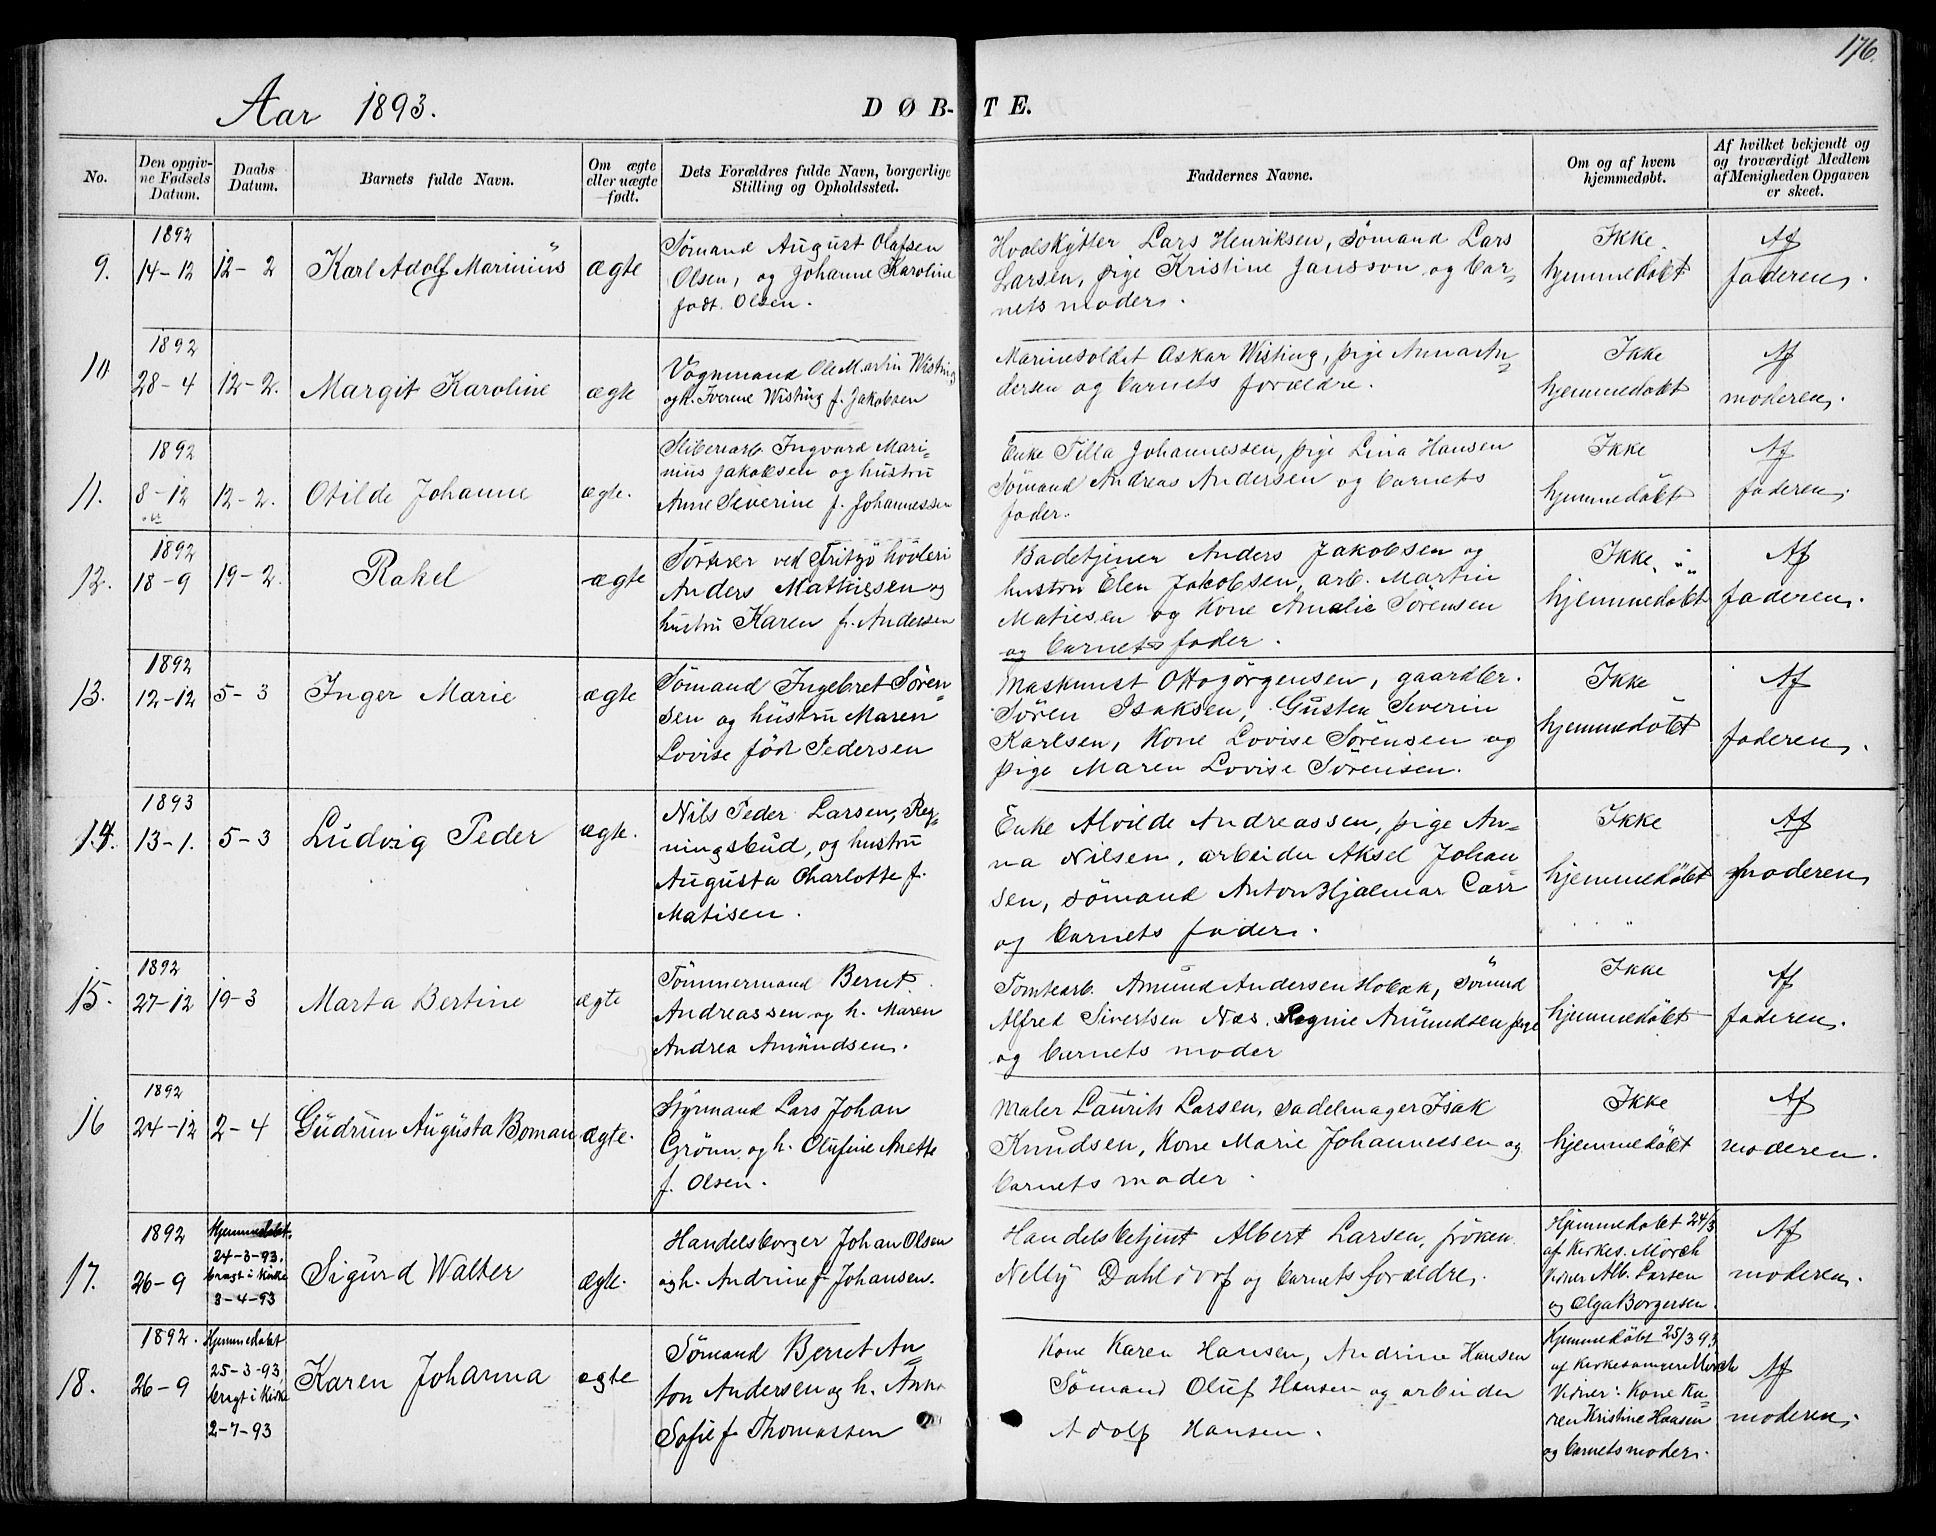 176.
Aar 1893.
DØB-TE.
No.
Den opgiv-
ne Fødsels
Datum.
Daabs
Datum.
Barnets fulde Navn.
Om ægte
eller uægte
født.
Dets Forældres fulde Navn, borgerlige
Stilling og Opholdssted.
Faddernes Navne.
Om og af hvem
hjemmedøbt.
Af hvilket bekjendt og
og troværdigt Medlem
af Menigheden Opgaven
er skeet.
9.
1892
14-12
12-2
Karl Adolf Marinius
ægte
Sømand August Olafsen
Olsen, og Johanne Karoline
født. Olsen.
Hvalskytter Lars Henriksen, sømand Lars
Larsen, pige Kristine Jansson og bar-
nets moder.
Ikke
hjemmedøbt
Af
faderen.
10
1892
28-4
12-2.
Margit Karoline
ægte
Vognmand Ole Martin Wisting
og h. Iverine Wisting f. Jakobsen
Marinesoldat Oskar Wisting, pige Anna An-
dersen og barnets forældre.
Ikke
hjemmedøbt
Af
moderen.
11.
1892
8-12
12-2.
Otilde Johanne
ægte.
Sliberiarb. Ingvard Mari-
nius Jakobsen og hustru
Anne Severine f. Johannessen
Enke Tilla Johannessen, pige Lina Hansen
Sømand Andreas Andersen og barnets
fader.
Ikke
hjemmedøbt
Af
faderen.
12.
1892
18-9
19-2.
Rakel
ægte
ved Fritzø høvleri
Anders Mathissen og
hustru Karen f. Andersen
Badetjener Anders Jakobsen og
hustru Elen Jakobsen, arb. Martin
Matiesen og Kone Amalie Sørensen
og barnets fader.
Ikke
hjemmedøbt
Af
faderen.
13.
1892
12-12
5-3
Inger Marie
ægte
Sømand Ingebret Søren-
sen og hustru Maren
Lovise født Pedersen
Maskinist Otto Jørgensen, gaardbr.
Søren Isaksen, Gusten Severin
Karlsen, Kone Lovise Sørensen og
pige Maren Lovise Sørensen.
Ikke
hjemmedøbt
Af
faderen.
14.
1893
13-1.
5-3
Ludvig Peder
ægte.
Nils Peder Larsen, Reg-
ningsbud, og hustru
Augusta Charlotte f.
Matisen.
Enke Alvilde Andreassen, pige An-
na Nilsen, arbeider Aksel Johan
sen, sømand Anton Hjalmar Carr
og barnets fader.
Ikke
hjemmedøbt
Af
moderen
15.
1892
27-12
19-3
Marta Bertine
ægte
Tømmermand Bernt
Andreassen og h. Maren
Andrea Amundsen.
Tomtearb. Amund Andersen Hobæk, sømnd
Alfred Sivertsen Næs. Regine Amundsen pige
og barnets moder
Ikke
hjemmedøbt
Af
faderen.
16
1892
24-12
2-4
Gudrun Augusta Boman
ægte.
Styrmand Lars Johan
Grønn, og h. Olufine Anette
f. Olsen.
Maler Laurits Larsen, sadelmager Isak
Knudsen, Kone Marie Johannessen og
barnets moder.
Ikke
hjemmedøbt
Af
moderen.
17.
1892
26-9
Hjemmedøbt
24-3-93.
bragt i Kirke
3-4-93
Sigurd Walter
ægte.
Handelsborger Johan Olsen
og h. Andrine f Johansen.
Handelsbetjent Albert Larsen, frøken
Nelly Dahldorf og barnets forældre.
Hjemmedøbt 24/3
af Kirkes. Mørch
Vidner Alb. Larsen
og Olga Borgersen.
Af
moderen.
18.
1892.
26-9
Hjemmedøbt
25-3-93,
bragt i Kirke
2-7-93
Karen Johanna
ægte
Sømand Bernt An
ton Andersen og h. Anna
Sofie f Thomassen
Kone Karen Hansen, Andrine Hansen
Sømand Oluf Hansen og arbeider
Adolf Hansen.
Hjemmedøbt 25/3 93
af Kirkesanger Mørch
Vidner: Kone Ka-
ren Kristine Hansen
og barnets moder.
Af
moderen.